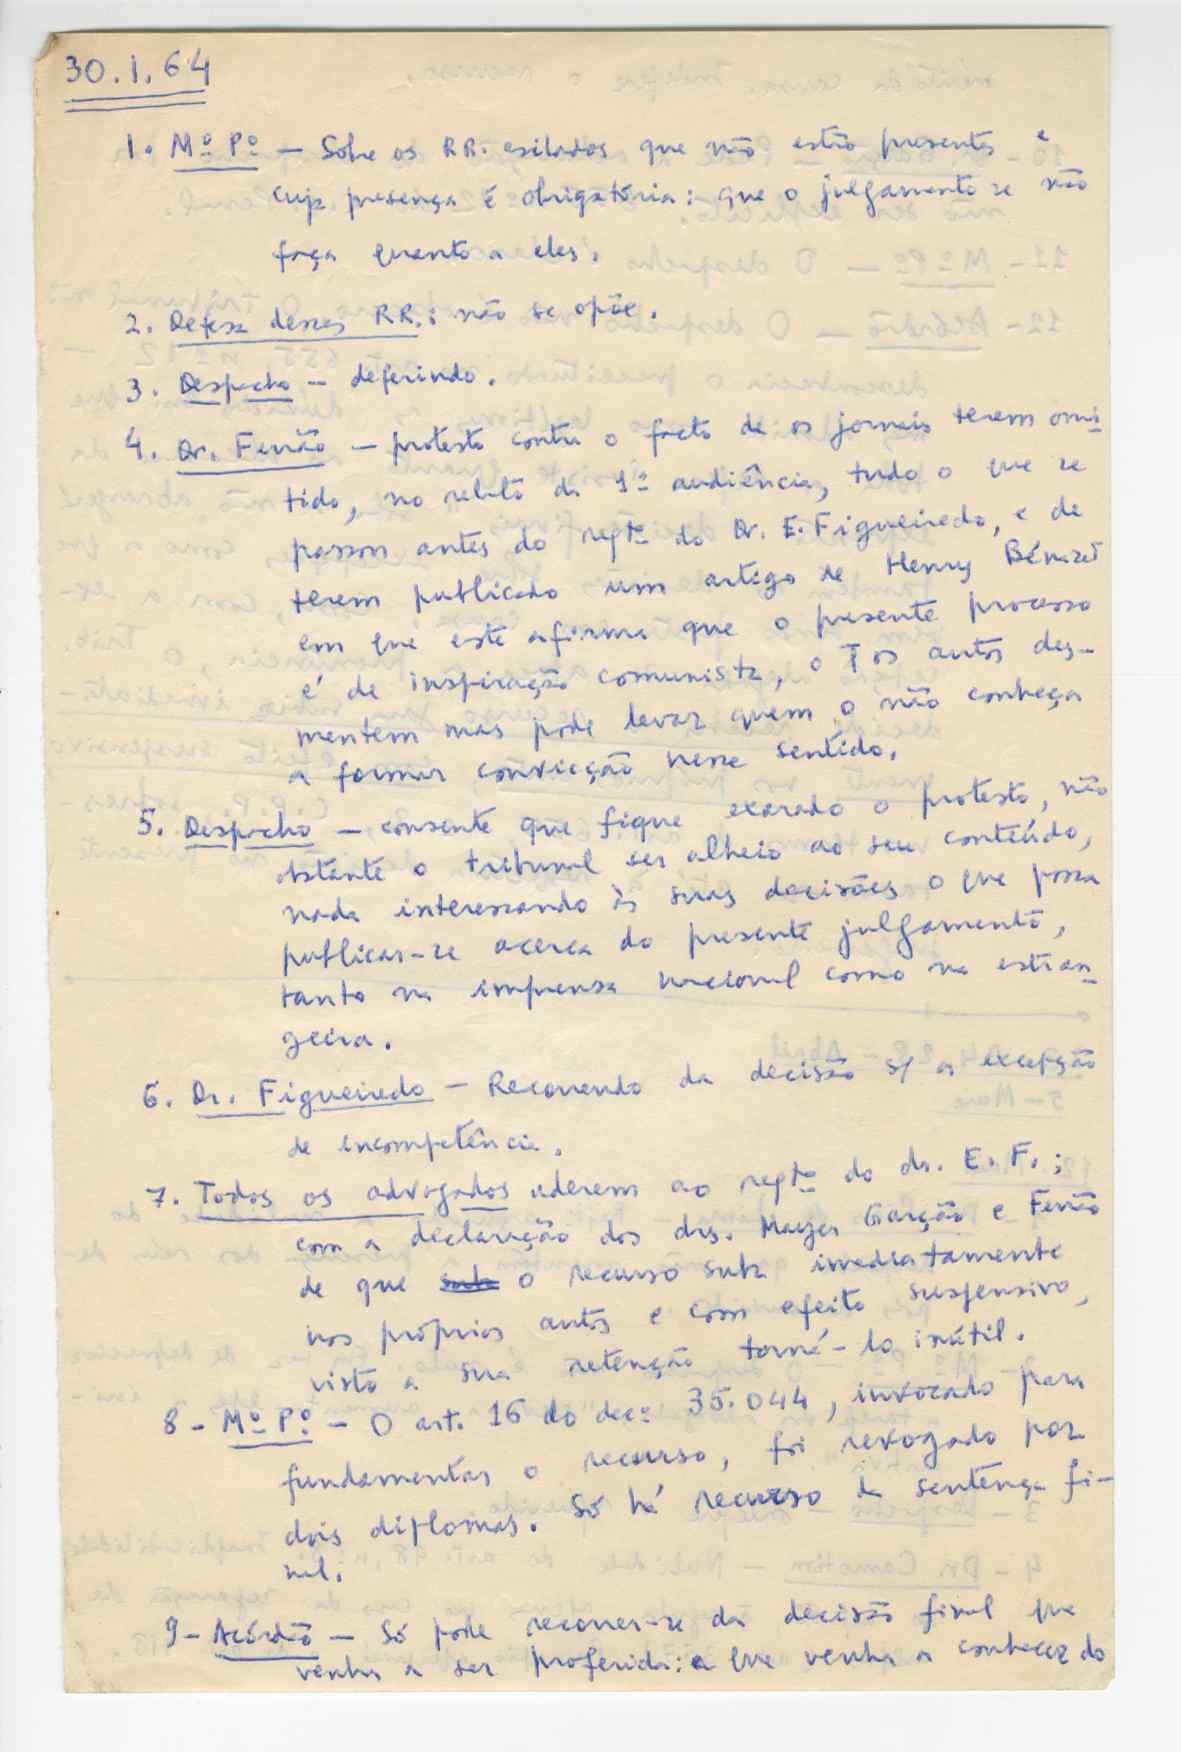 30.1.64
1. Mº Pº — Sobre os RR. exilados que não estão presentes e
cuja presença é obrigatória: que o julgamento se não
faça quanto a eles.
2. Defesa desses RR.: não se opõe.
3. Despacho — deferindo.
4. Dr. Ferrão — protesto contra o facto de os jornais terem omi-
tido, no relato da 1ª audiência, tudo o que se
passou antes do reqtº do Dr. E. Figueiredo, e de
terem publicado um artigo de Henry Bénazet
em que este afirma que o presente processo
é de inspiração comunista, o q os autos des-
mentem mas pode levar quem o não conheça
a formar convicção nesse sentido.
5. Despacho — consente que fique exarado o protesto, não
obstante o tribunal ser alheio ao seu conteúdo,
nada interessando às suas decisões o que possa
publicar-se acerca do presente julgamento,
tanto na imprensa nacional como na estran-
geira.
6. Dr. Figueiredo — Recorrendo da decisão s/ a excepção
de incompetência.
7. Todos os advogados aderem ao reqtº do dr. E. F.;
com a declaração dos drs. Mayer Garção e Ferrão
de que suba o recurso suba imediatamente
nos próprios autos e com efeito suspensivo,
visto a sua retenção torná-lo inútil.
8 - Mº Pº — O art. 16 do decº 35.044, invocado para
fundamentar o recurso, foi revogado por
dois diplomas. Só há recurso da sentença fi-
nal.
9 - Acórdão — Só pode recorrer-se da decisão final que
venha a ser proferida: a que venha a conhecer do